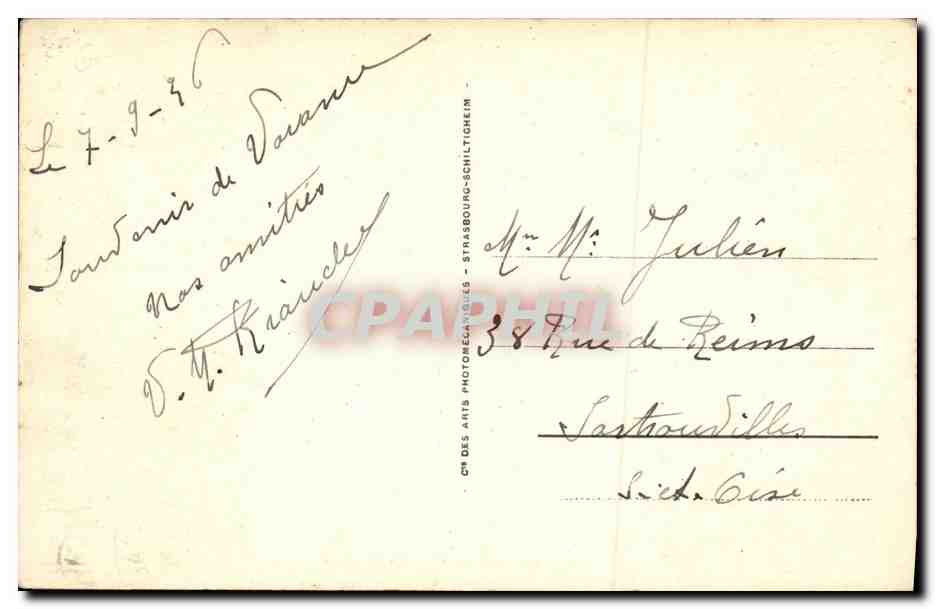 Le 7-9-36
Souvenir de Vacance
Nos amitiés
V. M.
Cie DES ARTS PHOTOMECANIQUES - STRASBOURG-SCHILTIGHEIM -
CPAPHIL
Mme Mr Julien
38 Rue de Reims
Sartrouvilles
S. et. Oise